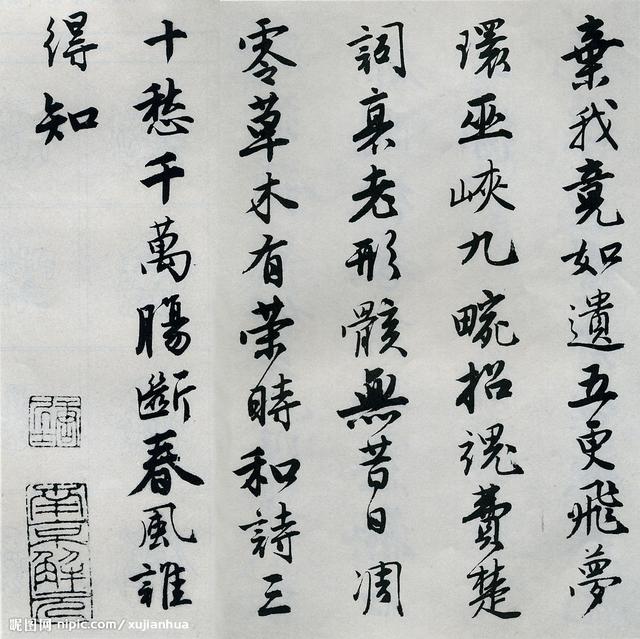 棄我竟如遺五更飛夢
環巫峽九畹招魂費楚
詞衰老形骸無昔日凋
零草木有榮時和詩三
十愁千萬腸斷春風誰
得知
南京解元
昵图网 nipic.com/xujianhua